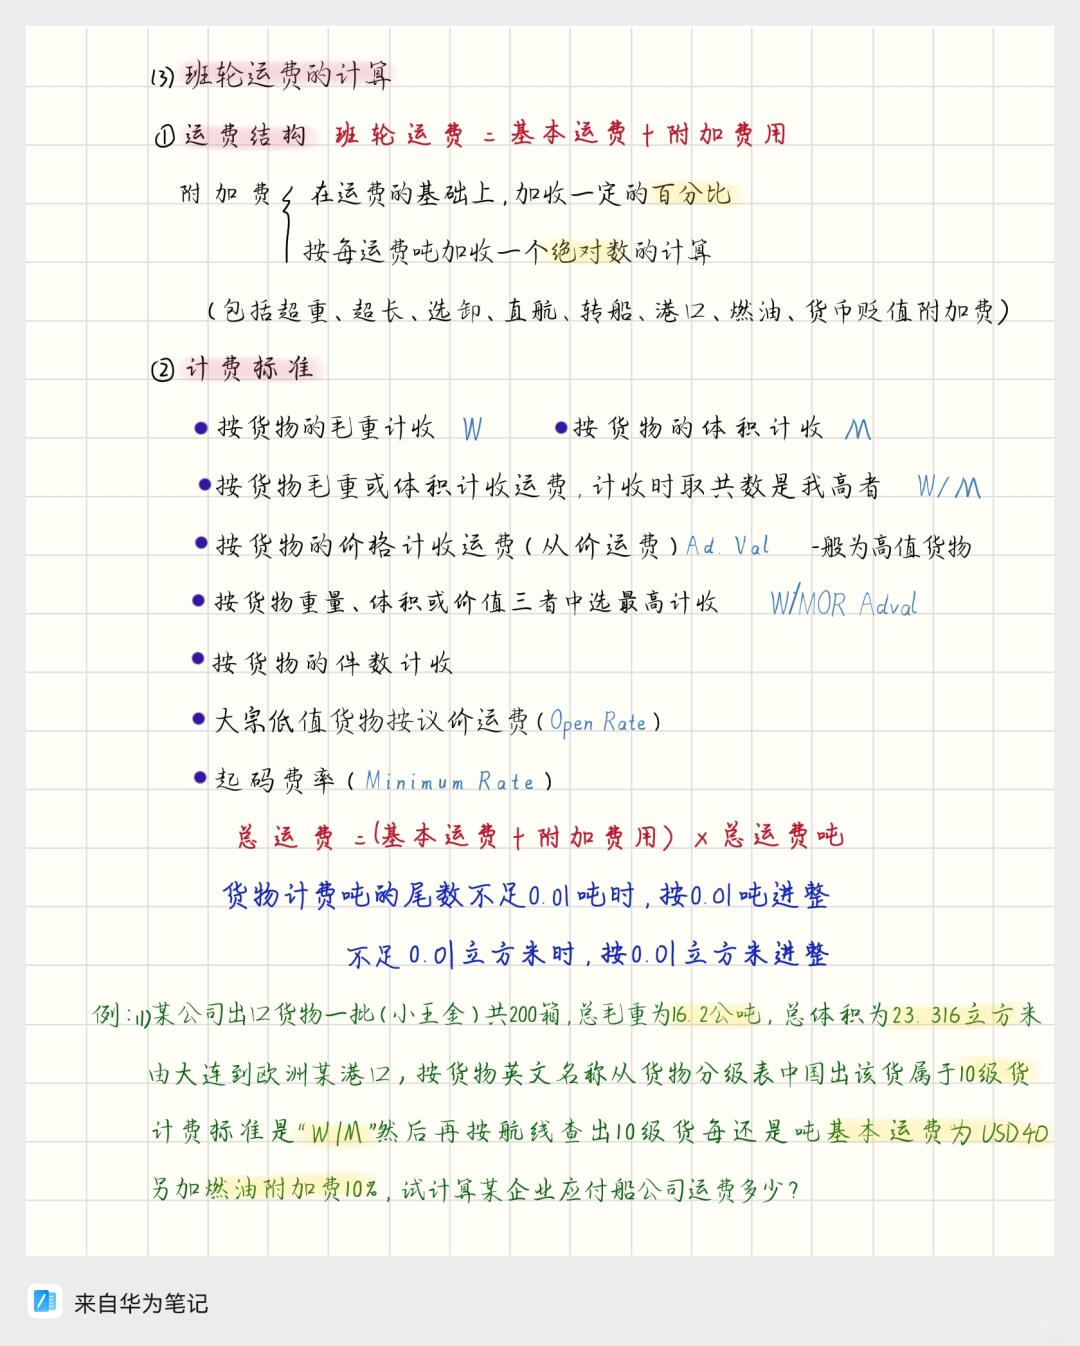 (3) 班轮运费的计算
① 运费结构 班轮运费 = 基本运费 + 附加费用
附加费{ 在运费的基础上,加收一定的百分比
按每运费吨加收一个绝对数的计算
(包括超重、超长、选卸、直航、转船、港口、燃油、货币贬值附加费)
② 计费标准
●按货物的毛重计收 W ●按货物的体积计收 M
●按货物毛重或体积计收运费,计收时取共数是我高者 W/M
●按货物的价格计收运费(从价运费)Ad. Val 一般为高值货物
●按货物重量、体积或价值三者中选最高计收 W/MOR Adval
●按货物的件数计收
●大宗低值货物按议价运费(Open Rate)
●起码费率(Minimum Rate)
总运费=(基本运费+附加费用)×总运费吨
货物计费吨的尾数不足0.01吨时,按0.01吨进整
不足0.01立方米时,按0.01立方米进整
例:(1)某公司出口货物一批(小王金)共200箱,总毛重为16.2公吨,总体积为23.316立方米
由大连到欧洲某港口,按货物英文名称从货物分级表中国出该货属于10级货
计费标准是“W/M”然后再按航线查出10级货每还是吨基本运费为USD40
另加燃油附加费10%,试计算某企业应付船公司运费多少?
来自华为笔记